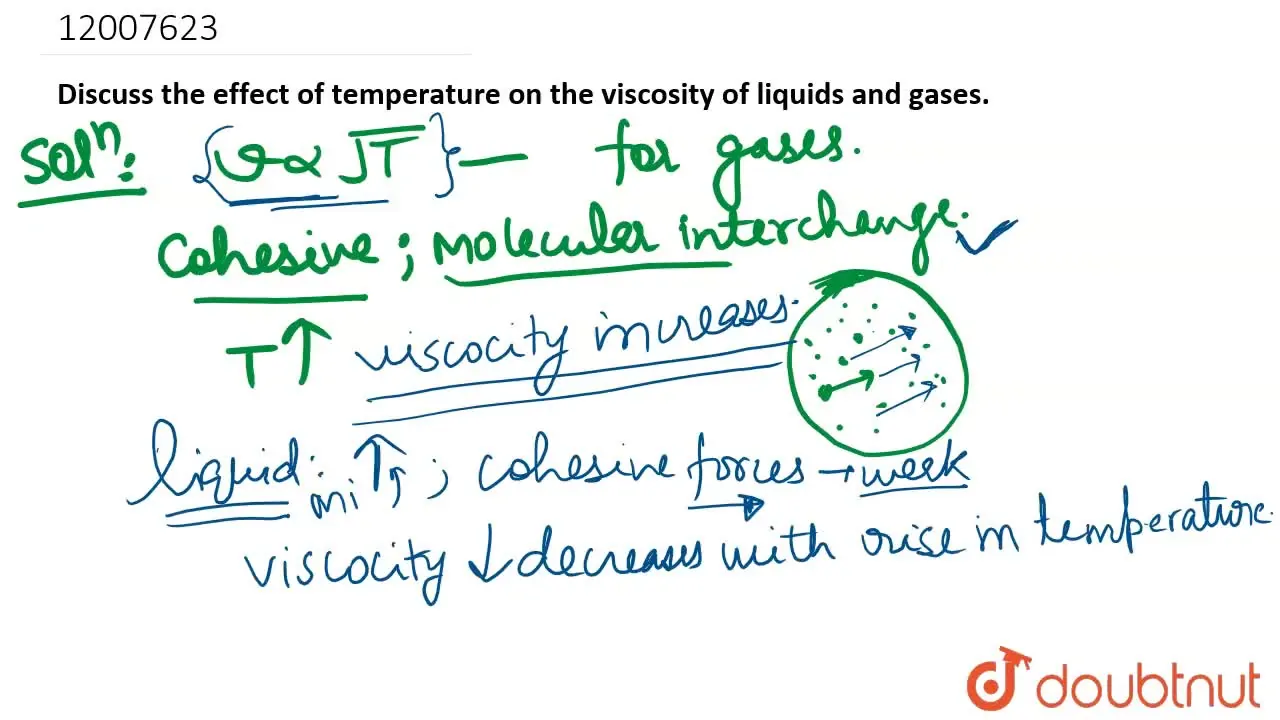 12007623
Discuss the effect of temperature on the viscosity of liquids and gases.
Solⁿ: {υ ∝ √T} — for gases.
Cohesive ; Molecular interchange.
T ↑ viscocity increases.
liquid: ↑ ; cohesive forces → week
viscocity ↓ decreases with rise in temperature.
doubtnut